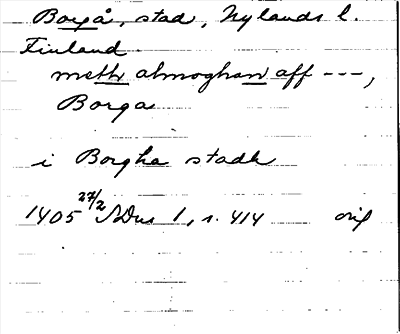 Borgå, stad, Nylands l.
Finland
meth almoghan aff ---,
Borga
i Borgha stadh
1405 27/2 SDns 1, s. 414 orig